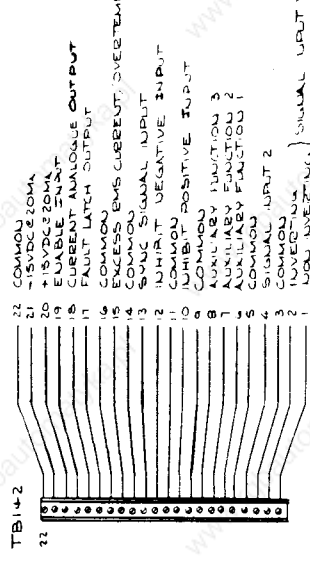 TB1+2
22
22 COMMON
21 -15VDC @ 20MA
20 +15VDC @ 20MA
19 ENABLE INPUT
18 CURRENT ANALOGUE OUTPUT
17 FAULT LATCH OUTPUT
16 COMMON
15 EXCESS RMS CURRENT/OVERTEM
14 COMMON
13 SYNC SIGNAL INPUT
12 INHIBIT NEGATIVE INPUT
11 COMMON
10 INHIBIT POSITIVE INPUT
9 COMMON
8 AUXILIARY FUNCTION 3
7 AUXILIARY FUNCTION 2
6 AUXILIARY FUNCTION 1
5 COMMON
4 SIGNAL INPUT 2
3 COMMON
2 INVERTING } SIGNAL INPUT
1 NON INVERTING